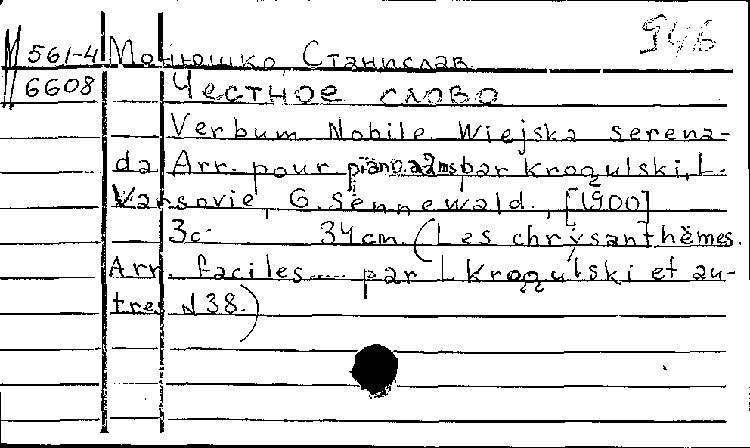 946
М 561-4 Монюшко, Станислав
6608 Честное слово
Verbum Nobile Wiejska serena-
da Arr. pour piano a 2ms par Krogulski, L.
Varsovie, G. Sennewald., [1900]
3с. 34cm. (Les chrysanthèmes.
Arr. faciles.... par L Krogulski et au-
tres N38.)